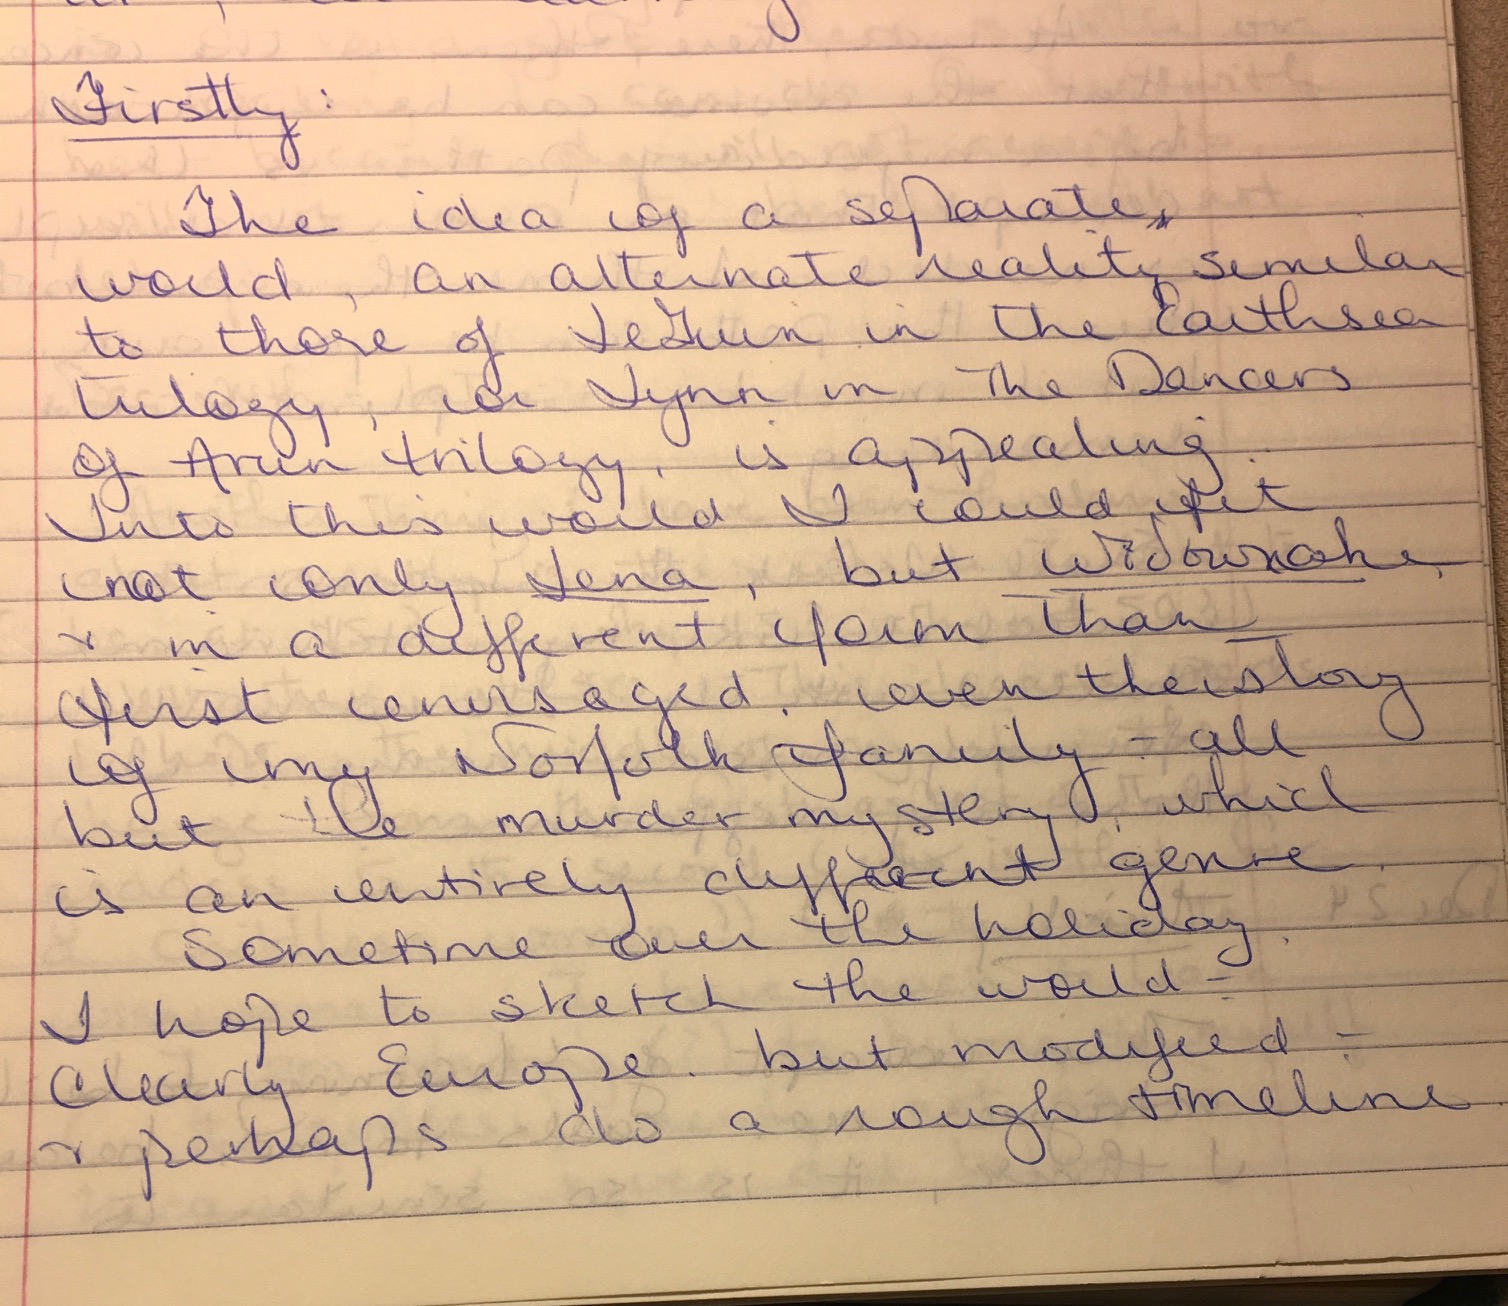 Firstly:
The idea of a separate
world, an alternate reality similar
to those of LeGuin in the Earthsea
trilogy, or Lynn in The Dancers
of Arun trilogy, is appealing.
Into this world I could fit
not only Lena, but
& in a different form than
first envisaged, even the story
of my Norfolk family - all
but the murder mystery, which
is an entirely different genre.
Sometime over the holiday,
I hope to sketch the world -
Clearly Europe, but modified -
& perhaps do a rough timeline